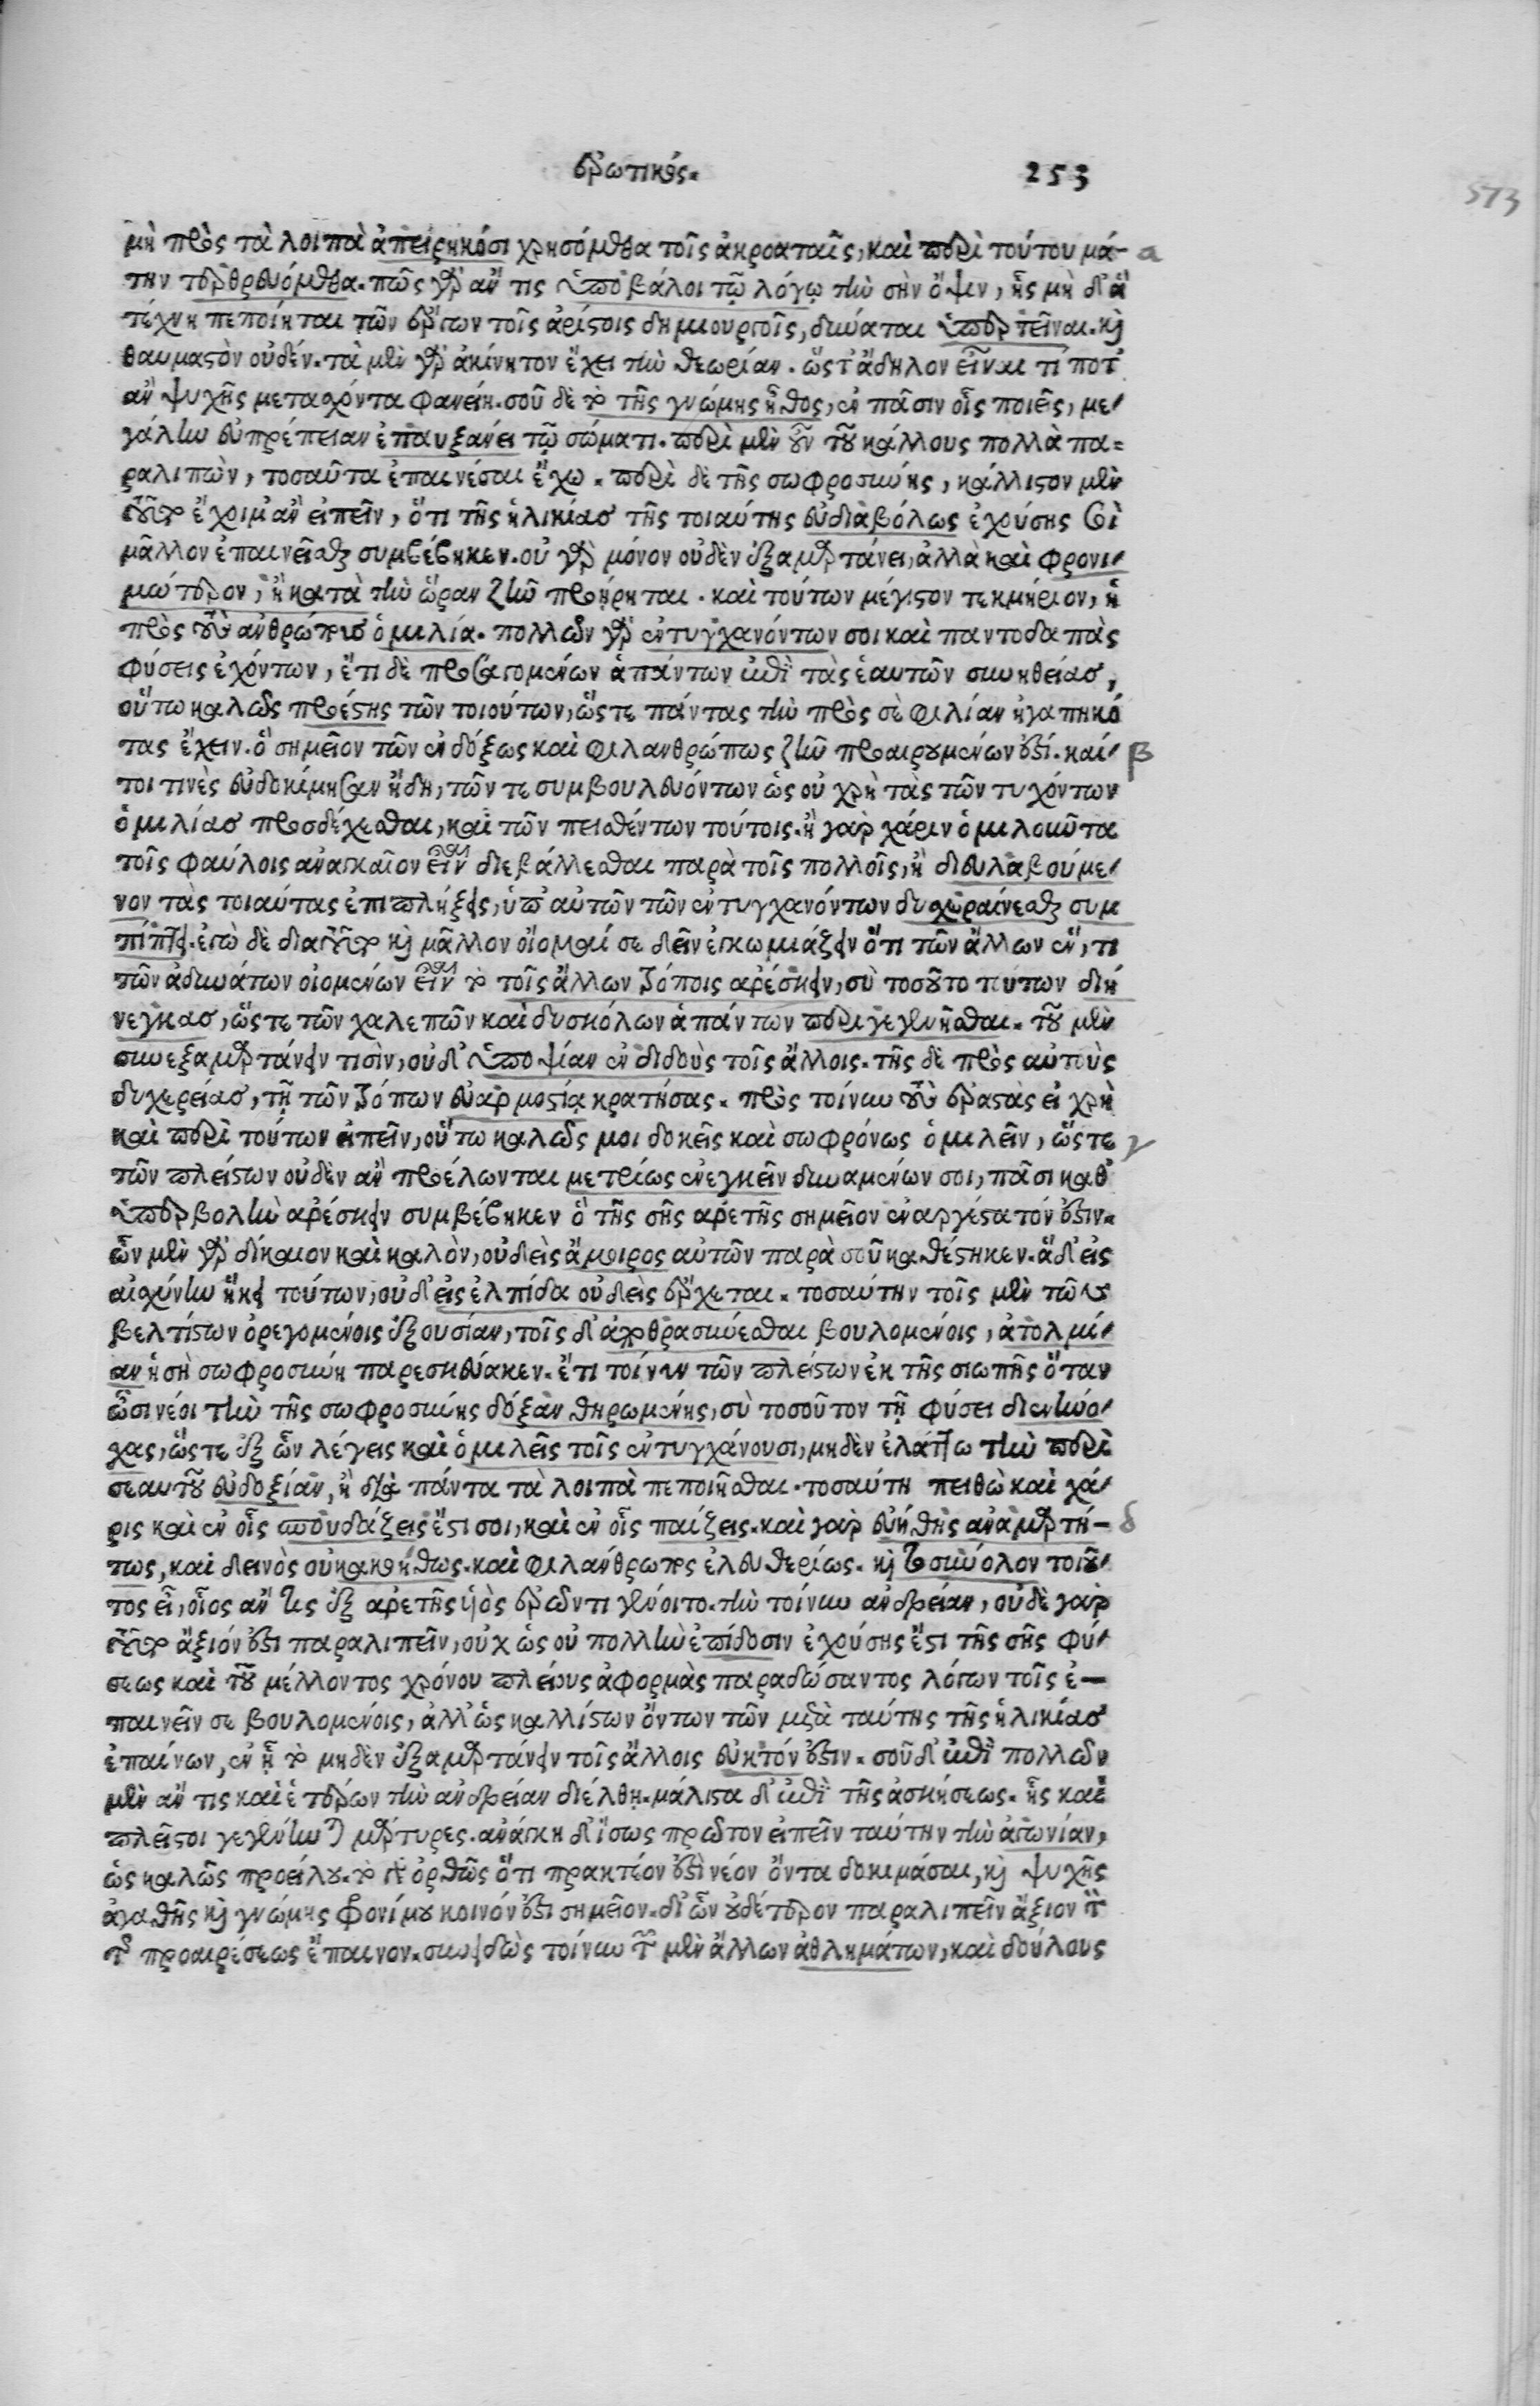 ἐρωτικός.
253
573
μὴ πρὸς τὰ λοιπὰ ἀπειρηκόσι χρησόμεθα τοῖς ἀκροαταῖς, καὶ περὶ τούτου μά- α
την τερθρευόμεθα. πῶς γὰρ ἄν τις ὑποβάλοι τῷ λόγῳ τὴν σὴν ὄψιν, ἧς μὴ δ' ἃ
τέχνη πεποίηται τῶν ἔργων τοῖς ἀρίστοις δημιουργοῖς, δύναται ὑπερτεῖναι. καὶ
θαυμαστὸν οὐδέν. τὰ μὲν γὰρ ἀκίνητον ἔχει τὴν θεωρίαν. ὥστ' ἄδηλον εἶναι τί ποτ'
ἂν ψυχῆς μετασχόντα φανείη. σοῦ δὲ τὸ τῆς γνώμης ἦθος, ἐν πᾶσιν οἷς ποιεῖς, με-
γάλην εὐπρέπειαν ἐπαυξάνει τῷ σώματι. περὶ μὲν οὖν τοῦ κάλλους πολλὰ πα-
ραλιπὼν, τοσαῦτα ἐπαινέσαι ἔχω. περὶ δὲ τῆς σωφροσύνης, κάλλιστον μὲν
τοῦτο ἔχοιμ' ἂν εἰπεῖν, ὅτι τῆς ἡλικίας τῆς τοιαύτης εὐδιαβόλως ἐχούσης σοὶ
μᾶλλον ἐπαινεῖσθαι συμβέβηκεν. οὐ γὰρ μόνον οὐδὲν ἐξαμαρτάνει, ἀλλὰ καὶ φρονι-
μώτερον, ἢ κατὰ τὴν ὥραν ζῆν προῄρηται. καὶ τούτων μέγιστον τεκμήριον, ἡ
πρὸς τοὺς ἀνθρώπους ὁμιλία. πολλῶν γὰρ ἐντυγχανόντων σοι καὶ παντοδαπὰς
φύσεις ἐχόντων, ἔτι δὲ προσαγομένων ἁπάντων ἐπὶ τὰς ἑαυτῶν συνηθείας,
οὕτω καλῶς προέστης τῶν τοιούτων, ὥστε πάντας τὴν πρὸς σὲ φιλίαν ἠγαπηκό
τας ἔχειν. ὃ σημεῖον τῶν ἐνδόξως καὶ φιλανθρώπως ζῆν προαιρουμένων ἐστί. καί- β
τοι τινὲς εὐδοκίμησαν ἤδη, τῶν τε συμβουλευόντων ὡς οὐ χρὴ τὰς τῶν τυχόντων
ὁμιλίας προσδέχεσθαι, καὶ τῶν πεισθέντων τούτοις. ἢ γὰρ χάριν ὁμιλοῦντα
τοῖς φαύλοις ἀναγκαῖον εἶναι διεβάλλεσθαι παρὰ τοῖς πολλοῖς, ἢ διευλαβούμε-
νον τὰς τοιαύτας ἐπιπλήξεις, ὑπ' αὐτῶν τῶν ἐντυγχανόντων δυσχεραίνεσθαι συμ
πίπτειν. ἐγὼ δὲ διὰ τοῦτο καὶ μᾶλλον οἴομαί σε δεῖν ἐγκωμιάζειν ὅτι τῶν ἄλλων ἕν, τι
τῶν ἀδυνάτων οἰομένων εἶναι τὸ τοῖς ἄλλων τρόποις ἀρέσκειν, σὺ τοσοῦτο τούτων διή
νεγκας, ὥστε τῶν χαλεπῶν καὶ δυσκόλων ἁπάντων περιγεγενῆσθαι. τοῦ μὲν
συνεξαμαρτάνειν τισὶν, οὐδ' ὑποψίαν ἐνδιδοὺς τοῖς ἄλλοις. τῆς δὲ πρὸς αὐτοὺς
δυσχερείας, τῇ τῶν τρόπων εὐαρμοστίᾳ κρατήσας. πρὸς τοίνυν τοὺς ἐραστὰς εἰ χρὴ
καὶ περὶ τούτων εἰπεῖν, οὕτω καλῶς μοι δοκεῖς καὶ σωφρόνως ὁμιλεῖν, ὥστε γ
τῶν πλείστων οὐδὲν ἂν προέλωνται μετρίως ἐνεγκεῖν δυναμένων σοι, πᾶσι καθ'
ὑπερβολὴν ἀρέσκειν συμβέβηκεν ὃ τῆς σῆς ἀρετῆς σημεῖον ἐναργέστατόν ἐστιν.
ὧν μὲν γὰρ δίκαιον καὶ καλὸν, οὐδεὶς ἄμοιρος αὐτῶν παρὰ σοῦ καθέστηκεν. ἃ δ' εἰς
αἰσχύνην ἥκει τούτων, οὐδ' εἰς ἐλπίδα οὐδεὶς ἔρχεται. τοσαύτην τοῖς μὲν τῶν
βελτίστων ὀρεγομένοις ἐξουσίαν, τοῖς δ' ἀποθρασύνεσθαι βουλομένοις, ἀτολμί-
αν ἡ σὴ σωφροσύνη παρεσκεύακεν. ἔτι τοίνυν τῶν πλείστων ἐκ τῆς σιωπῆς ὅταν
ὦσι νέοι τὴν τῆς σωφροσύνης δόξαν θηρωμένης, σὺ τοσοῦτον τῇ φύσει διενήνο-
χας, ὥστε ἐξ ὧν λέγεις καὶ ὁμιλεῖς τοῖς ἐντυγχάνουσι, μηδὲν ἐλάττω τὴν περὶ
σεαυτοῦ εὐδοξίαν, ἢ διὰ πάντα τὰ λοιπὰ πεποιῆσθαι. τοσαύτη πειθὼ καὶ χά-
ρις καὶ ἐν οἷς σπουδάζεις ἔστι σοι, καὶ ἐν οἷς παίζεις. καὶ γὰρ εὐήθης ἀναμαρτή- δ
τως, καὶ δεινὸς οὐ κακοήθως. καὶ φιλάνθρωπος ἐλευθερίως. καὶ τὸ σύνολον τοιοῦ-
τος εἶ, οἷος ἄν τις ἐξ ἀρετῆς υἱὸς ἔρωντι γένοιτο. τὴν τοίνυν ἀνδρείαν, οὐδὲ γὰρ
τοῦτο ἄξιόν ἐστι παραλιπεῖν, οὐχ ὡς οὐ πολλὴν ἐπίδοσιν ἐχούσης ἔτι τῆς σῆς φύ-
σεως καὶ τοῦ μέλλοντος χρόνου πλείους ἀφορμὰς παραδώσαντος λόγων τοῖς ἐ-
παινεῖν σε βουλομένοις, ἀλλ' ὡς καλλίστων ὄντων τῶν μετὰ ταύτης τῆς ἡλικίας
ἐπαίνων, ἐν ᾗ τὸ μηδὲν ἐξαμαρτάνειν τοῖς ἄλλοις εὐκτόν ἐστιν. σοῦ δ' ἐπὶ πολλῶν
μὲν ἄν τις καὶ ἑτέρων τὴν ἀνδρείαν διέλθῃ. μάλιστα δ' ἐπὶ τῆς ἀσκήσεως. ἧς καὶ
πλεῖστοι γεγένηνται μάρτυρες. ἀνάγκη δ' ἴσως πρῶτον εἰπεῖν ταύτην τὴν ἀγωνίαν,
ὡς καλῶς προείλου. τὸ γὰρ ὀρθῶς ὅτι πρακτέον ἐστὶ νέον ὄντα δοκιμάσαι, καὶ ψυχῆς
ἀγαθῆς καὶ γνώμης φρονίμου κοινόν ἐστι σημεῖον. δι' ὧν οὐδέτερον παραλιπεῖν ἄξιον τὸν
τῆς προαιρέσεως ἔπαινον. συνειδὼς τοίνυν τῶν μὲν ἄλλων ἀθλημάτων, καὶ δούλους